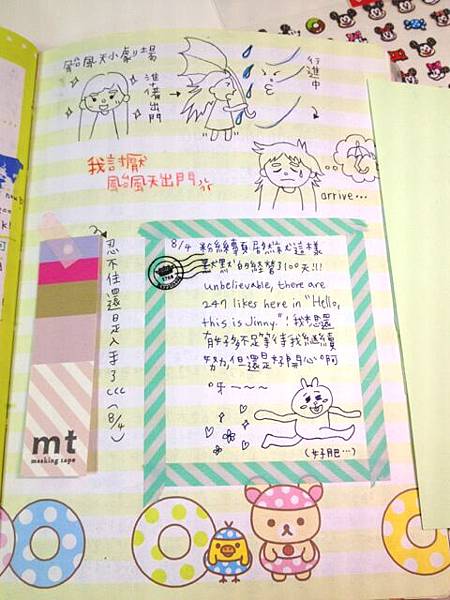 颱風天小劇場
準備出門
行進中
我討厭
颱風天出門
arrive...
忍不住還是入手了
(8/4)
8/4 粉絲專頁居然就這樣
默默的經營了100天!!!
unbelievable, there are
247 likes here in "Hello,
this is Jinny."! 我想還
有好多不足等待我繼續
努力,但還是好開心啊
呀~~~
(好肥...)
mt
masking tape